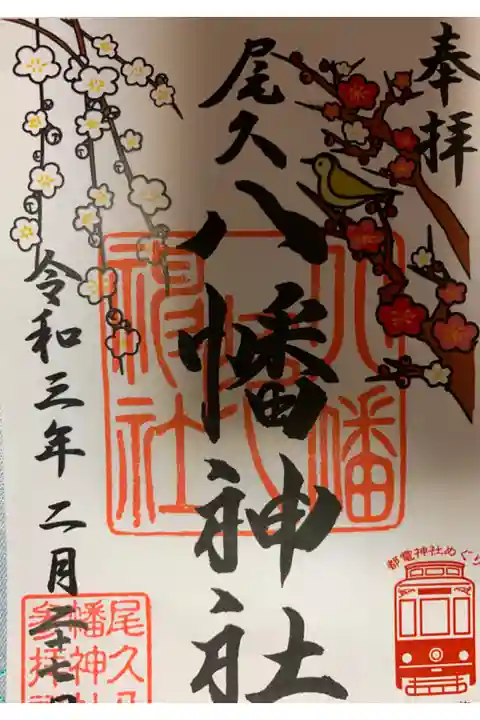 奉拝
尾久八幡神社
令和三年二月二十七日
八幡
神社
都電神社めぐり
尾久八
幡神社